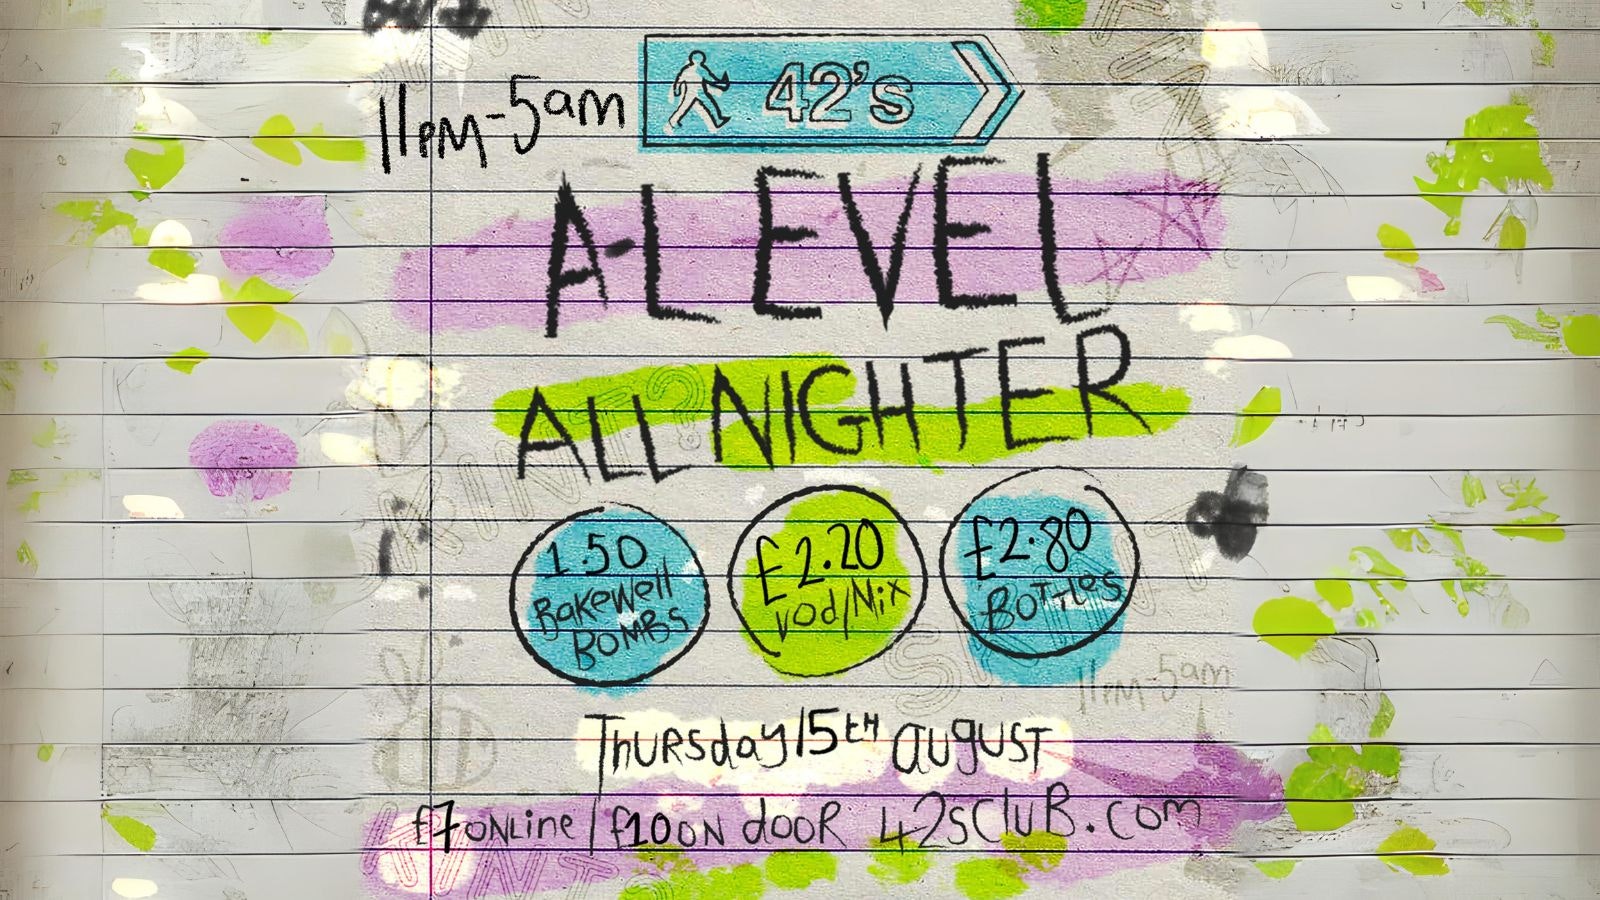 11PM-5am
42's
A-LEVEL
ALL NIGHTER
1.50
Bakewell
BOMBS
£2.20
Vod/Mix
£2.80
BOTTLES
11PM-5am
Thursday 15TH august
£7 ONLine / £10 ON dooR 42sCluB.com